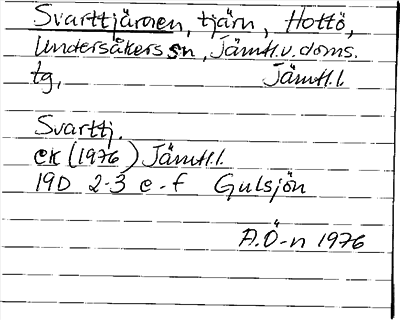 Svarttjärnen, tjärn, Hottö,
Undersåkers sn, Jämtl.v.doms.
tg, Jämtl.l.
Svarttj.
ek (1976) Jämtl.l.
19D 2-3 e-f Gulsjön
A.Ö-n 1976